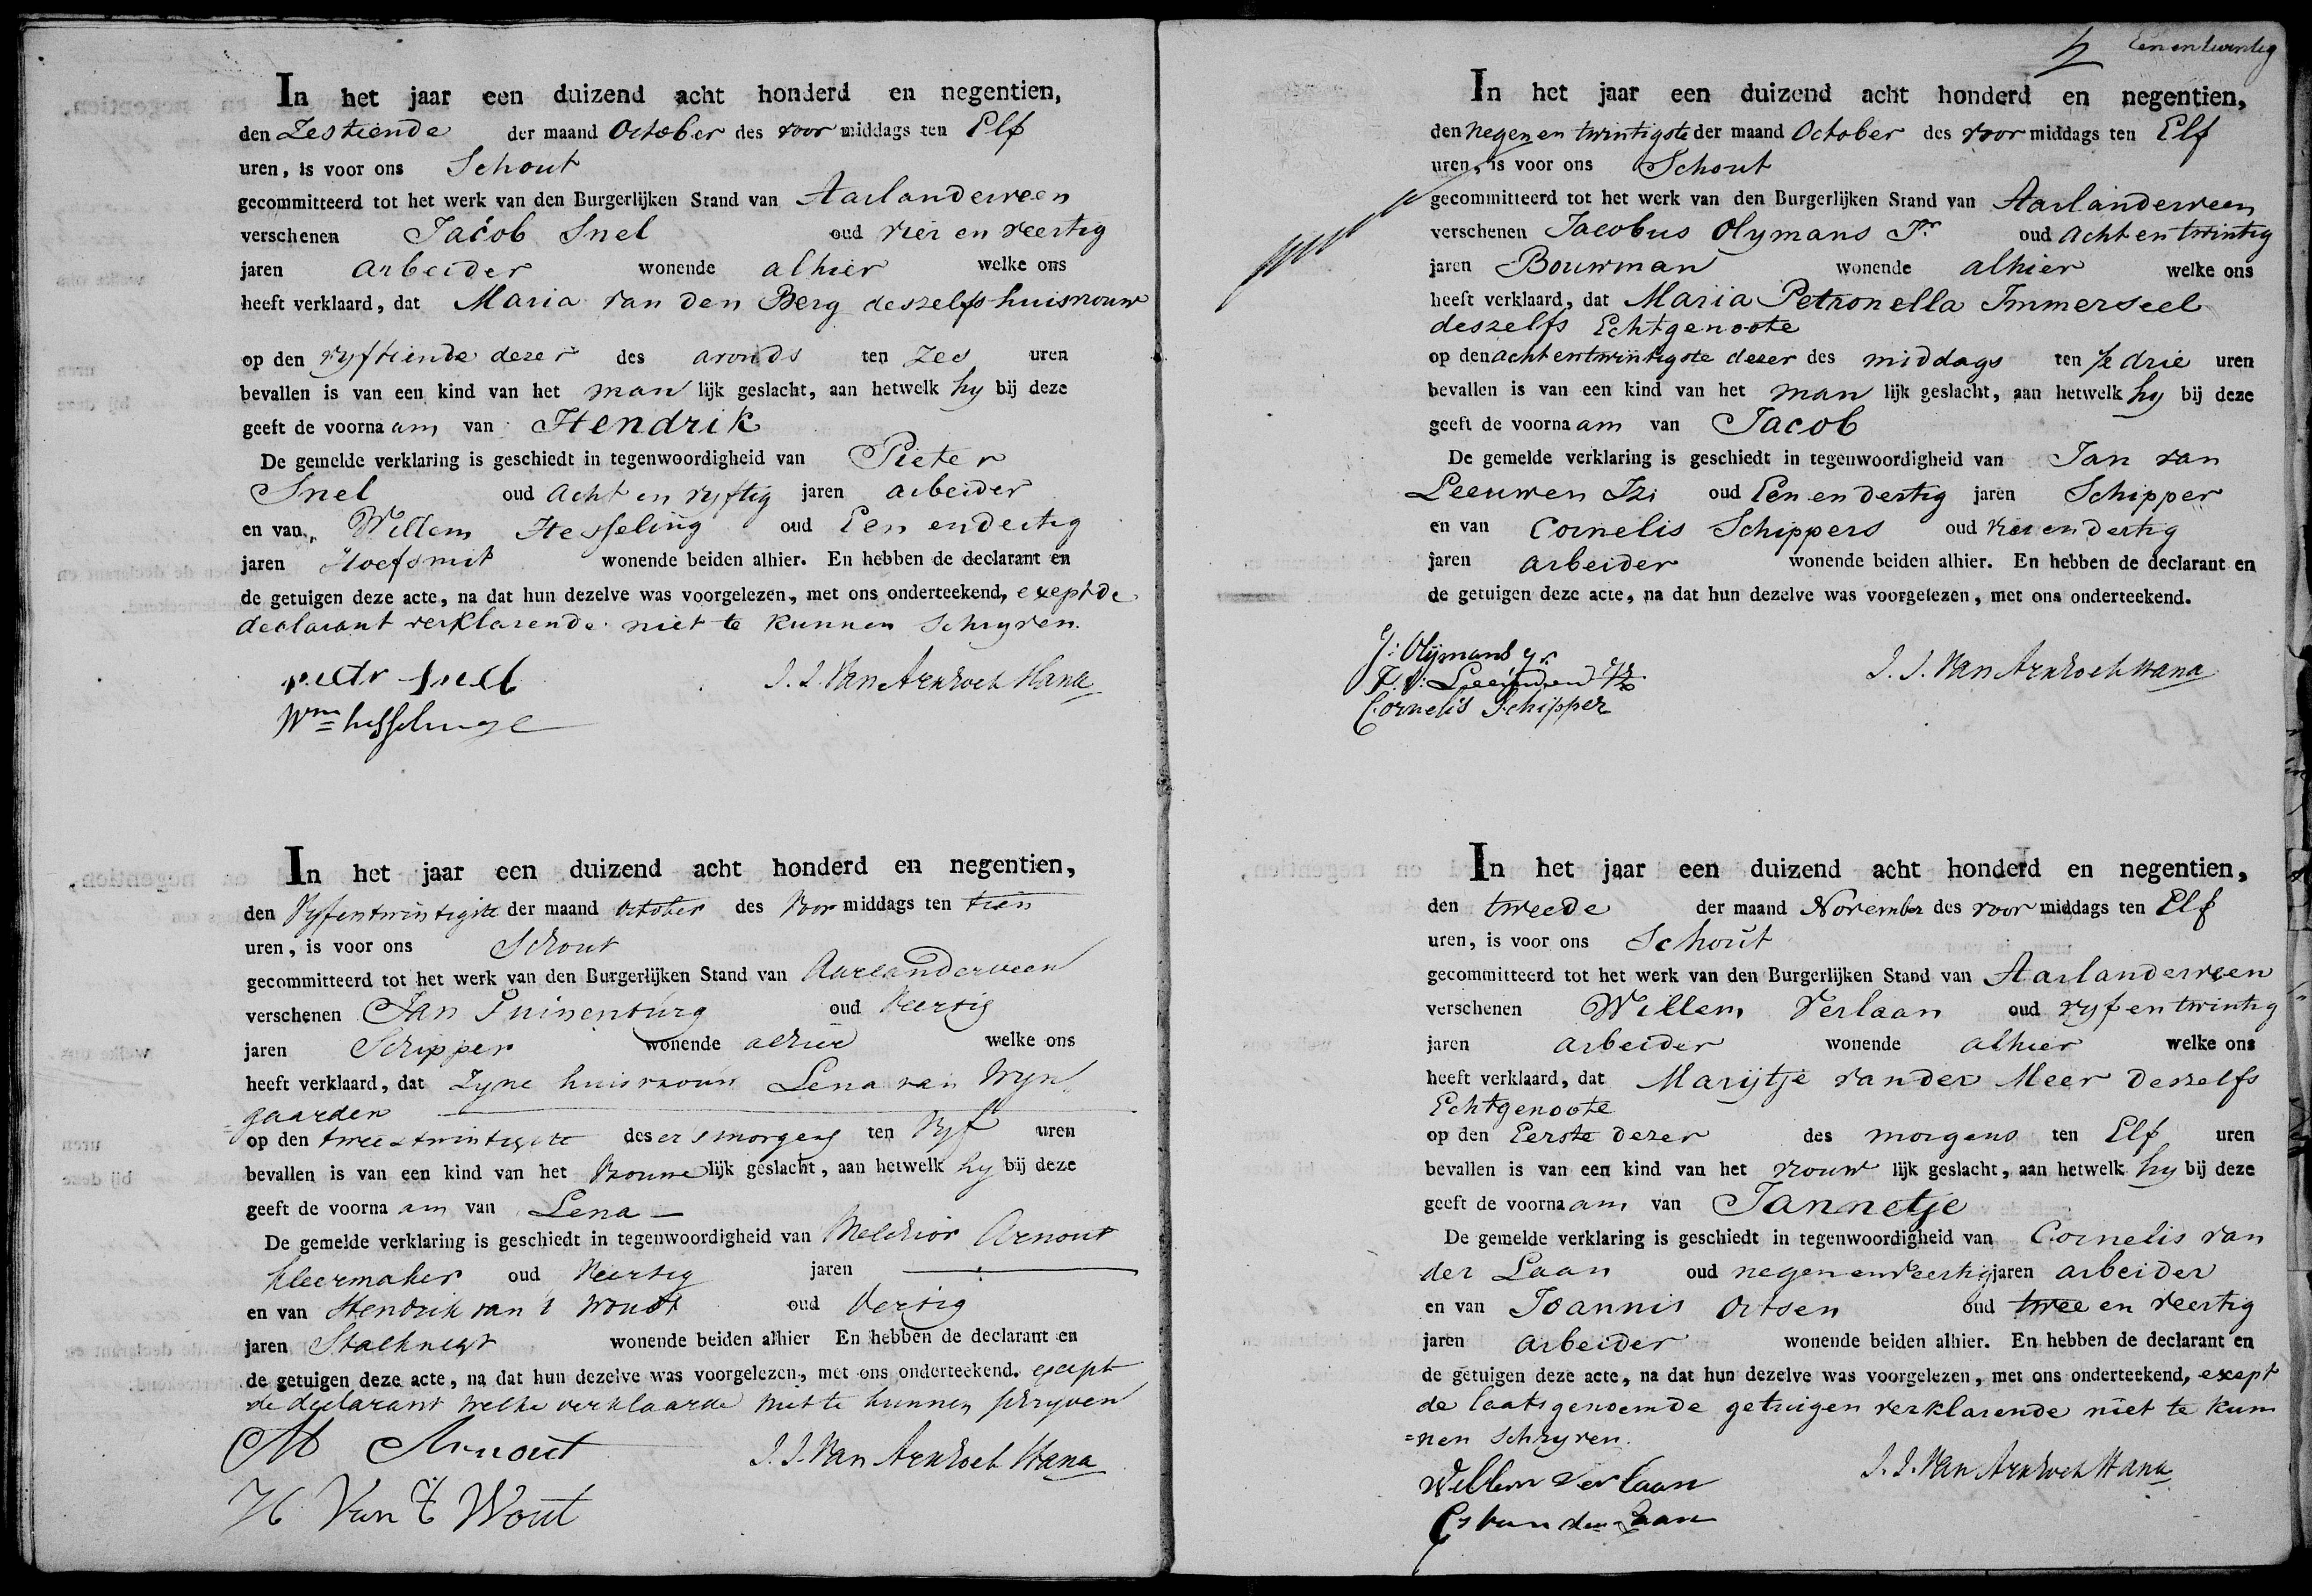 In het jaar een duizend acht honderd en negentien,
den Zestiende der maand October des voor middags ten Elf
uren, is voor ons Schout
gecommitteerd tot het werk van den Burgerlijken Stand van Aarlanderveen
verschenen Jacob Snel oud vier en veertig
jaren arbeider wonende alhier welke ons
heeft verklaard, dat Maria van den Berg deszelfs huisvrouw
op den vyftiende dezer des avonds ten Zes uren
bevallen is van een kind van het man lijk geslacht, aan hetwelk hy bij deze
geeft de voorna am van Hendrik
De gemelde verklaring is geschiedt in tegenwoordigheid van Pieter
Snel oud Acht en vyftig jaren arbeider
en van Willem Hesseling oud Een en dertig
jaren Hoefsmit wonende beiden alhier. En hebben de declarant en
de getuigen deze acte, na dat hun dezelve was voorgelezen, met ons onderteekend, exept de
declarant verklarende niet te kunnen schryven.
pietr snel J. J. Van Arnhoek Hana
Wm hesselinge
In het jaar een duizend acht honderd en negentien,
den Vyfentwintigste der maand October des Voor middags ten tien
uren, is voor ons Schout
gecommitteerd tot het werk van den Burgerlijken Stand van Aarlanderveen
verschenen Jan Puinenburg oud Veertig
jaren Schipper wonende alhier welke ons
heeft verklaard, dat Zyne huisvrouw Lena van Wyn
=gaarden
op den twee entwintigste deser smorgens ten Vyf uren
bevallen is van een kind van het Vrouwe lijk geslacht, aan hetwelk hy bij deze
geeft de voorna am van Lena
De gemelde verklaring is geschiedt in tegenwoordigheid van Melchior Arnout
kleermaker oud Veertig jaren
en van Hendrik van 't Woudt oud Vertig
jaren Stalknegt wonende beiden alhier En hebben de declarant en
de getuigen deze acte, na dat hun dezelve was voorgelezen, met ons onderteekend. except
de declarant welke verklaarde niet te kunnen schryven
M Arnout J. J. Van Arnhoek Hana
H Van 't Wout
Een en twintig
In het jaar een duizend acht honderd en negentien,
den negen en twintigste der maand October des voor middags ten Elf
uren, is voor ons Schout
gecommitteerd tot het werk van den Burgerlijken Stand van Aarlanderveen
verschenen Jacobus Olymans Jr oud acht en twintig
jaren Bouwman wonende alhier welke ons
heeft verklaard, dat Maria Petronella Immerseel
deszelfs Echtgenoote
op den acht entwintigste dezer des middags ten ½ drie uren
bevallen is van een kind van het man lijk geslacht, aan hetwelk hy bij deze
geeft de voorna am van Jacob
De gemelde verklaring is geschiedt in tegenwoordigheid van Jan van
Leeuwen Jzn oud Een en dertig jaren Schipper
en van Cornelis Schippers oud vier en dertig
jaren arbeider wonende beiden alhier. En hebben de declarant en
de getuigen deze acte, na dat hun dezelve was voorgelezen, met ons onderteekend.
J: Olijmans Jr. J. J. Van Arnhoek Hana
J. V: Leeuwen Jz
Cornelis Schipper
In het jaar een duizend acht honderd en negentien,
den tweede der maand November des voor middags ten Elf
uren, is voor ons Schout
gecommitteerd tot het werk van den Burgerlijken Stand van Aarlanderveen
verschenen Willem Verlaan oud vyf en twintig
jaren arbeider wonende alhier welke ons
heeft verklaard, dat Marijtje van der Meer deszelfs
Echtgenoote
op den Eerste dezer des morgens ten Elf uren
bevallen is van een kind van het vrouw lijk geslacht, aan hetwelk hy bij deze
geeft de voorna am van Jannetje
De gemelde verklaring is geschiedt in tegenwoordigheid van Cornelis van
der Laan oud negen en veertig jaren arbeider
en van Joannis Ortsen oud twee en veertig
jaren arbeider wonende beiden alhier. En hebben de declarant en
de getuigen deze acte, na dat hun dezelve was voorgelezen, met ons onderteekend, exept
de laatsgenoemde getuigen verklarende niet te kun
=nen schryven.
Willem Verlaan J. J. Van Arnhoek Hana
Cs van der Laan